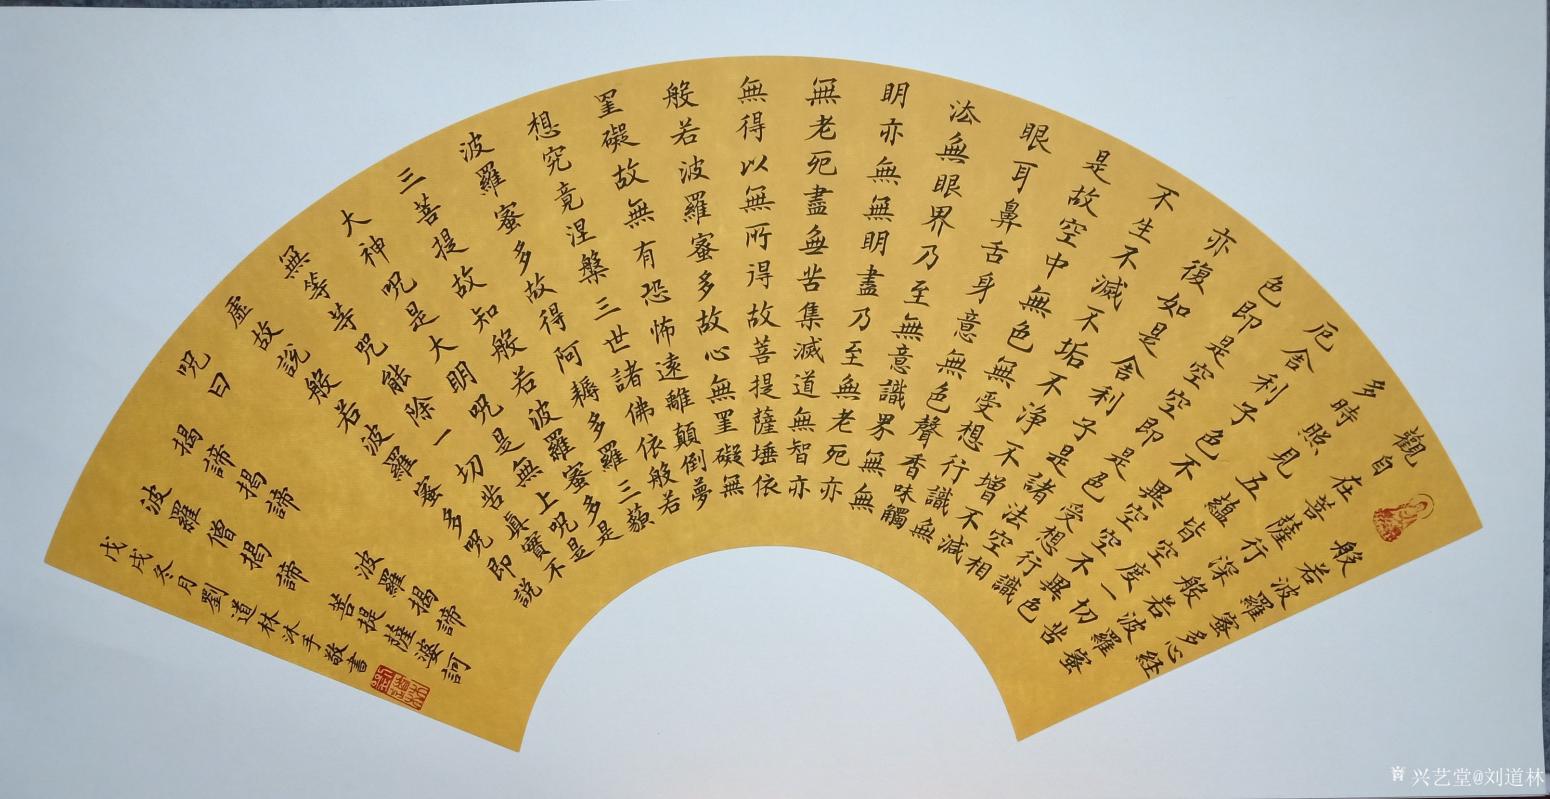 般若波羅蜜多心经
觀自在菩薩行深般若波羅蜜
多時照見五蘊皆空度一切苦
厄舍利子色不異空空不異色
色即是空空即是色受想行識
亦復如是舍利子是諸法空相
不生不滅不垢不淨不增不減
是故空中無色無受想行識無
眼耳鼻舌身意無色聲香味觸
法無眼界乃至無意識界無無
明亦無無明盡乃至無老死亦
無老死盡無苦集滅道無智亦
無得以無所得故菩提薩埵依
般若波羅蜜多故心無罣礙無
罣礙故無有恐怖遠離顛倒夢
想究竟涅槃三世諸佛依般若
波羅蜜多故得阿耨多羅三藐
三菩提故知般若波羅蜜多是
大神呪是大明呪是無上呪是
無等等呪能除一切苦真實不
虛故說般若波羅蜜多呪即說
呪曰
揭諦揭諦 波羅揭諦
波羅僧揭諦 菩提薩婆訶
戊戌冬月劉道林沐手敬書
兴艺堂@刘道林